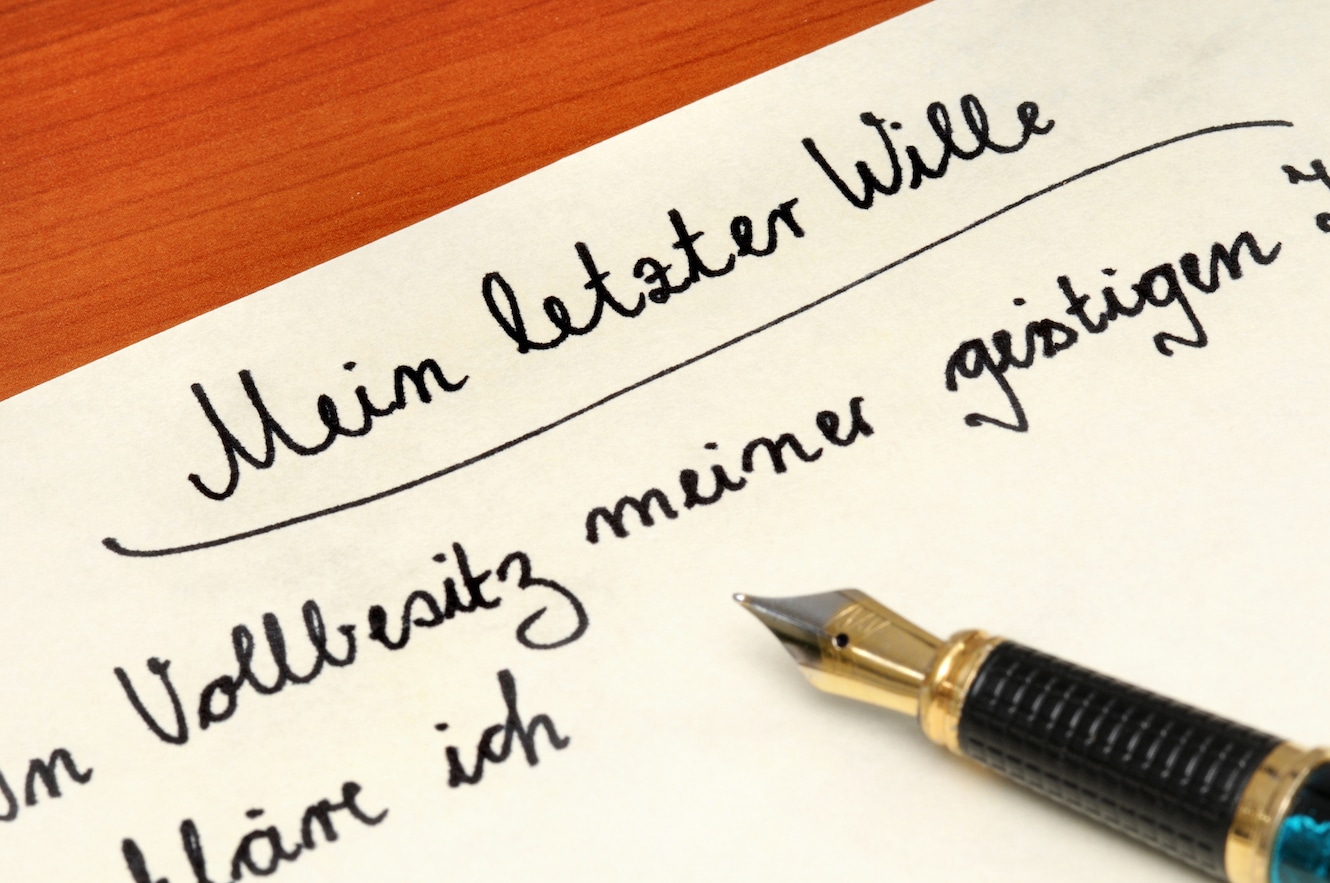 Mein letzter Wille
In Vollbesitz meiner geistigen
ich